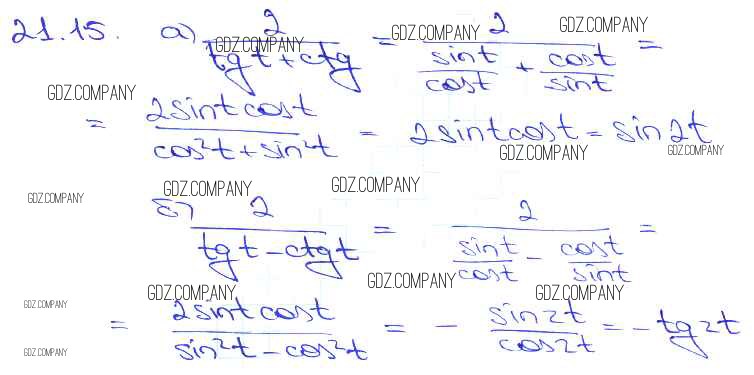 21.15. а) 2/(tg t + ctg) = 2/(sint/cost + cost/sint) =
= 2sintcost/(cos²t + sin²t) = 2sintcost = sin2t
б) 2/(tgt - ctgt) = 2/(sint/cost - cost/sint) =
= 2sintcost/(sin²t - cos²t) = - sin2t/cos2t = - tg2t
GDZ.COMPANY
GDZ.COMPANY
GDZ.COMPANY
GDZ.COMPANY
GDZ.COMPANY
GDZ.COMPANY
GDZ.COMPANY
GDZ.COMPANY
GDZ.COMPANY
GDZ.COMPANY
GDZ.COMPANY
GDZ.COMPANY
GDZ.COMPANY
GDZ.COMPANY